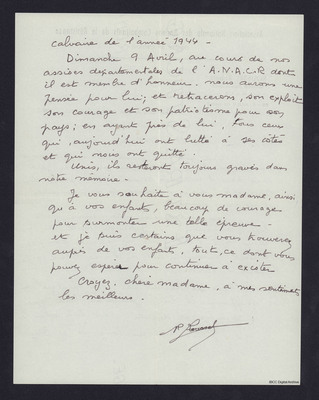 calvaire de l'année 1944 -
Dimanche 9 Avril, au cours de nos
assises départementales de l'A.N.A.C.R dont
il est membre d'honneur, nous aurons une
pensée pour lui; et retracerons, son exploit
son courage et son patriotisme pour son
pays; en ayant près de lui, tous ceux
qui, aujourd'hui ont lutté à ses côtés
et qui nous ont quitté.
Unis, ils resteront toujours gravés dans
notre mémoire -
Je vous souhaite à vous madame, ainsi
qu'à vos enfants, beaucoup de courage
pour surmonter une telle épreuve -
et je suis certains que vous trouverez
auprès de vos enfants, tout, ce dont vous
pouvez espérer pour continuer à exister
Croyez, chère madame, à mes sentiments
les meilleurs.
IBCC Digital Archive